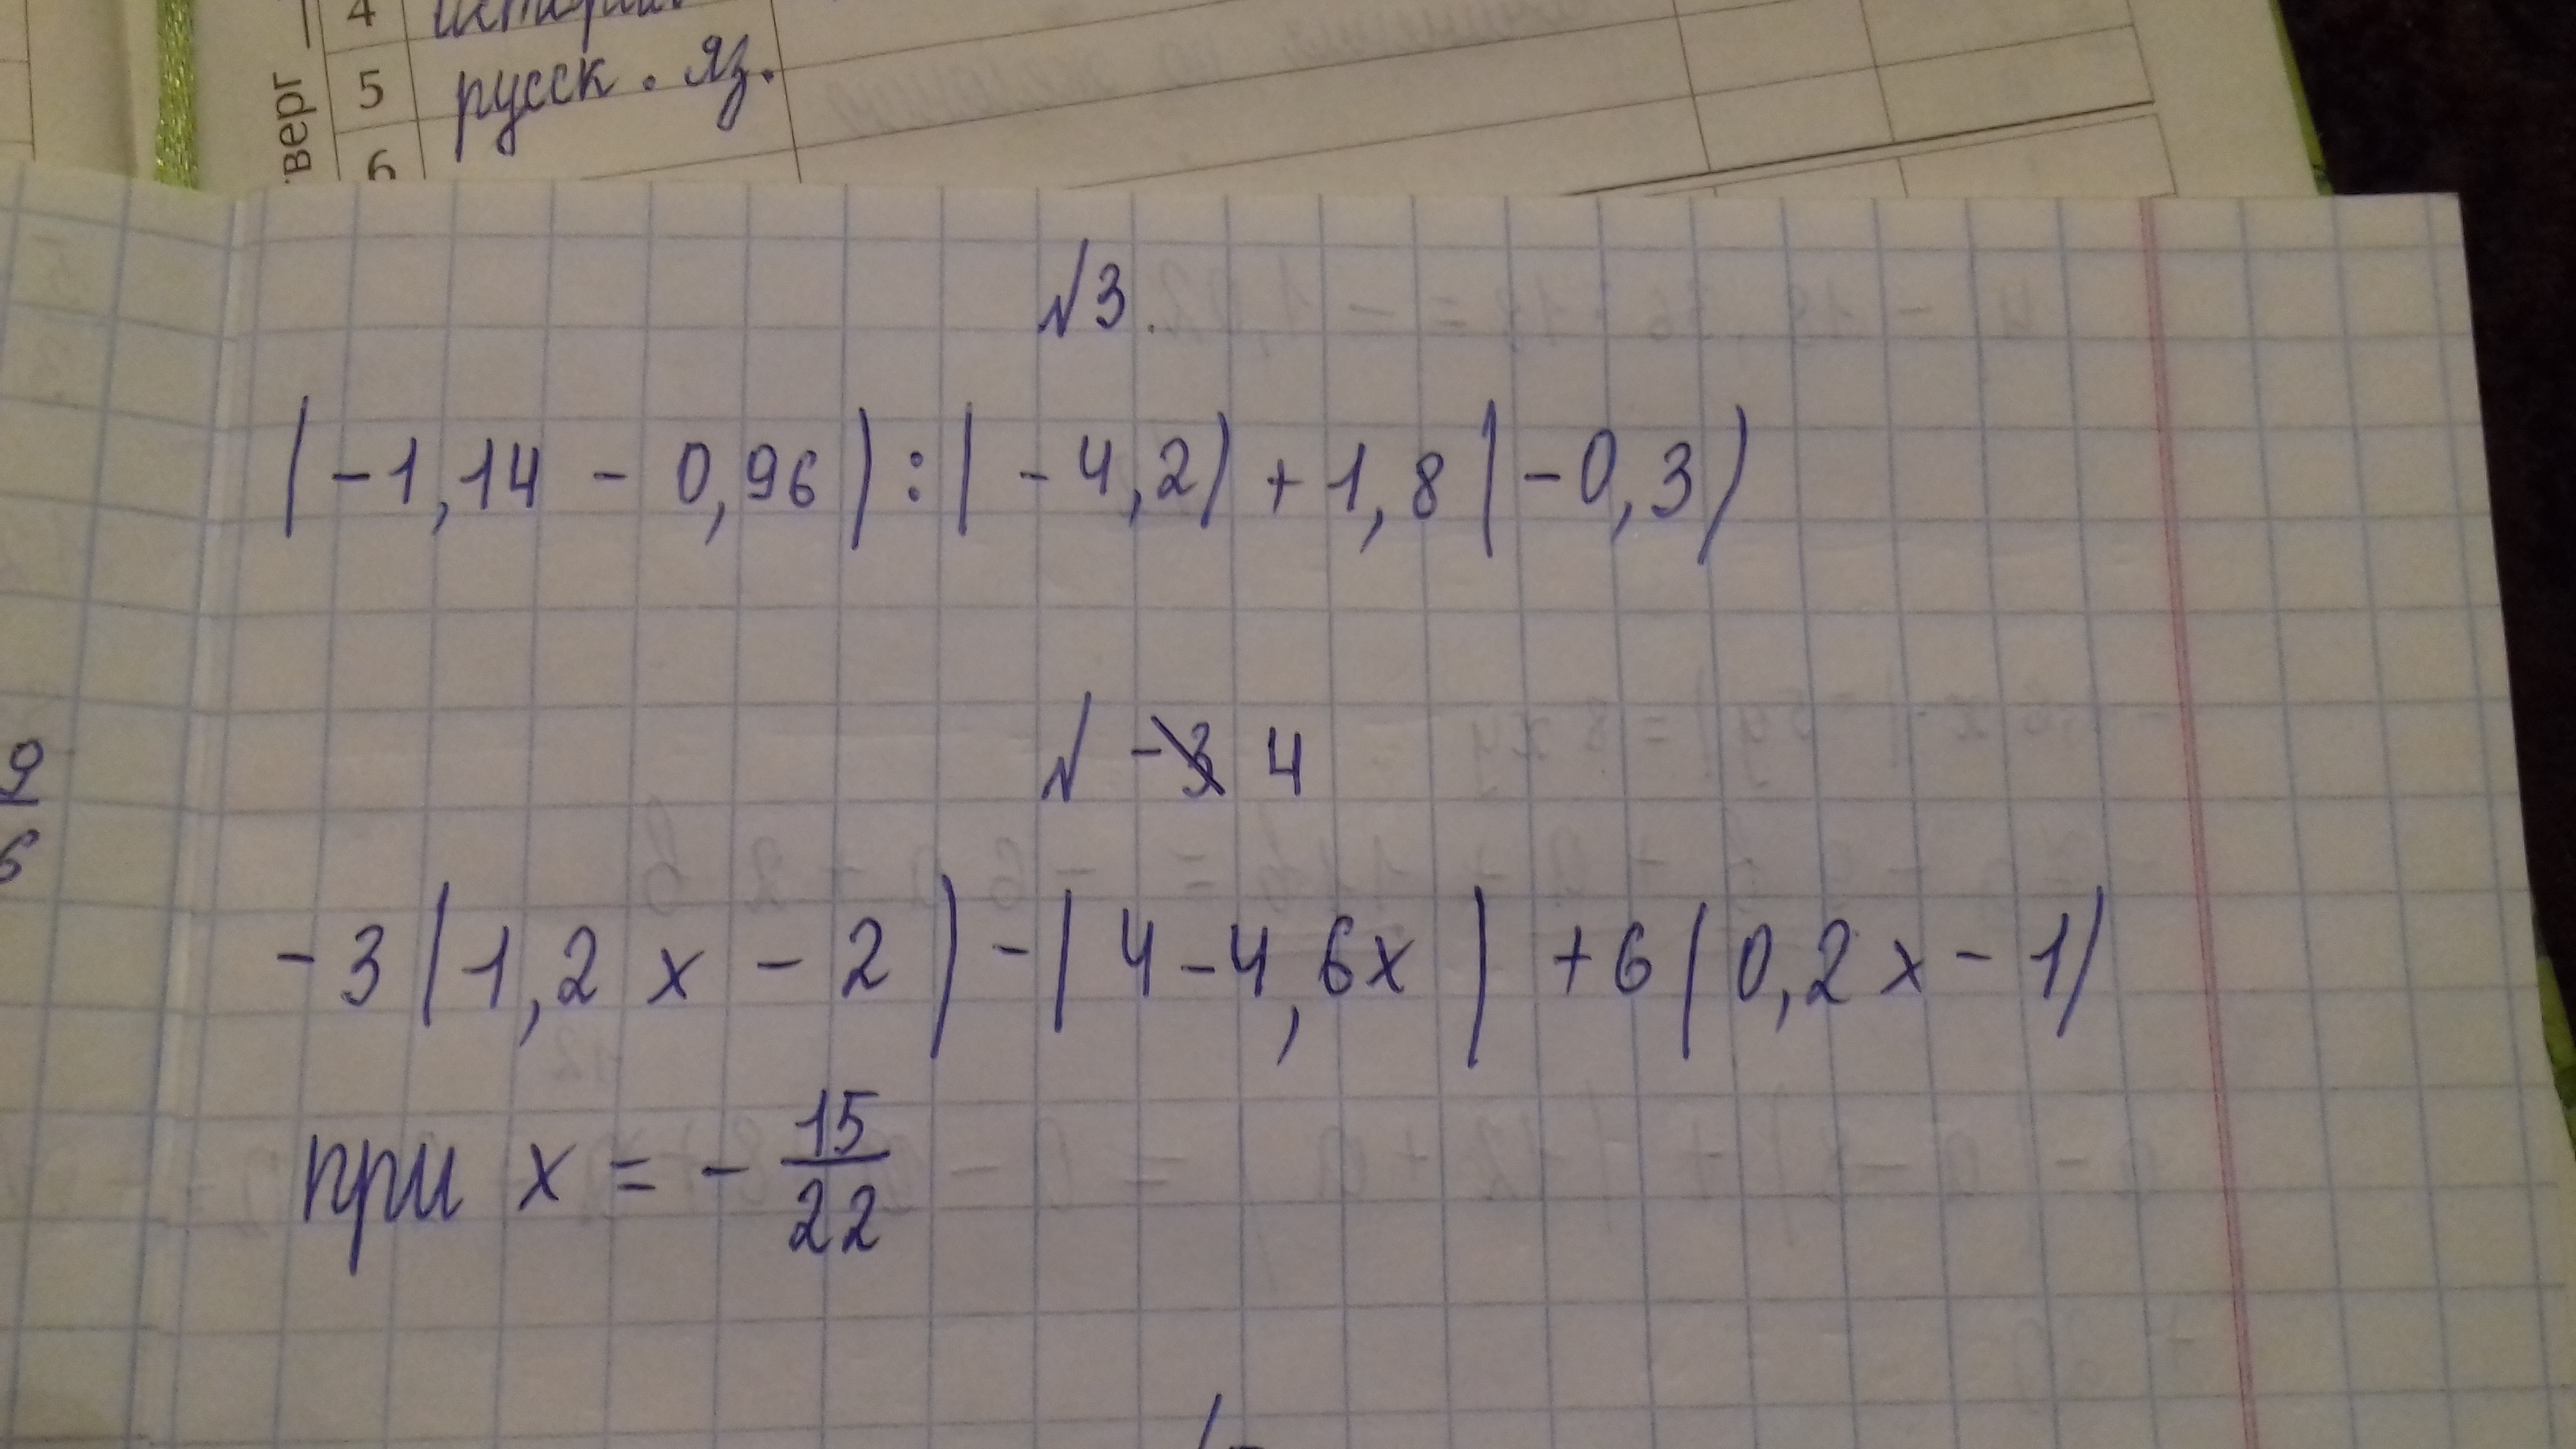 4 истори
5 русск. яз.
верг
6
№3.
(-1,14 - 0,96) : (-4,2) + 1,8 (-0,3)
№ 4
-3 (1,2 x - 2) - (4 - 4,6x) + 6 (0,2 x - 1)
при x = - 15/22
9
6